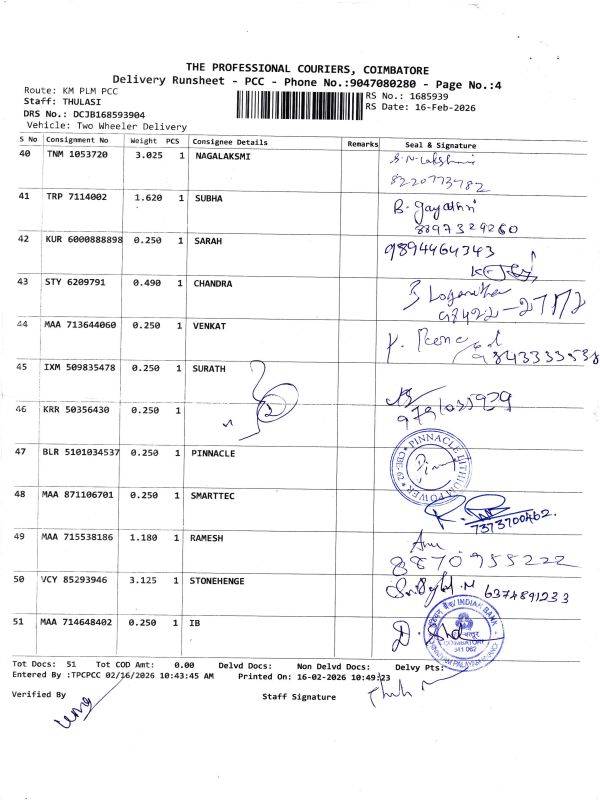 THE PROFESSIONAL COURIERS, COIMBATORE
Delivery Runsheet - PCC - Phone No.:9047080280 - Page No.:4
Route: KM PLM PCC
Staff: THULASI
DRS No.: DCJB168593904
Vehicle: Two Wheeler Delivery
RS No.: 1685939
RS Date: 16-Feb-2026
S No Consignment No Weight PCS Consignee Details Remarks Seal & Signature
40 TNM 1053720 3.025 1 NAGALAKSMI
8220773782
41 TRP 7114002 1.620 1 SUBHA B. Gayathri
8897329260
42 KUR 6000888898 0.250 1 SARAH 9894464343
43 STY 6209791 0.490 1 CHANDRA
98422-27172
44 MAA 713644060 0.250 1 VENKAT
9843333538
45 IXM 509835478 0.250 1 SURATH
46 KRR 50356430 0.250 1
47 BLR 5101034537 0.250 1 PINNACLE PINNACLE LITHIUM POWER
48 MAA 871106701 0.250 1 SMARTTEC
7373700462.
49 MAA 715538186 1.180 1 RAMESH
8870955222
50 VCY 85293946 3.125 1 STONEHENGE 6374891233
51 MAA 714648402 0.250 1 IB INDIAN BANK
COIMBATORE
641 062
Tot Docs: 51 Tot COD Amt: 0.00 Delvd Docs: Non Delvd Docs: Delvy Pts:
Entered By :TPCPCC 02/16/2026 10:43:45 AM Printed On: 16-02-2026 10:49:23
Verified By Staff Signature